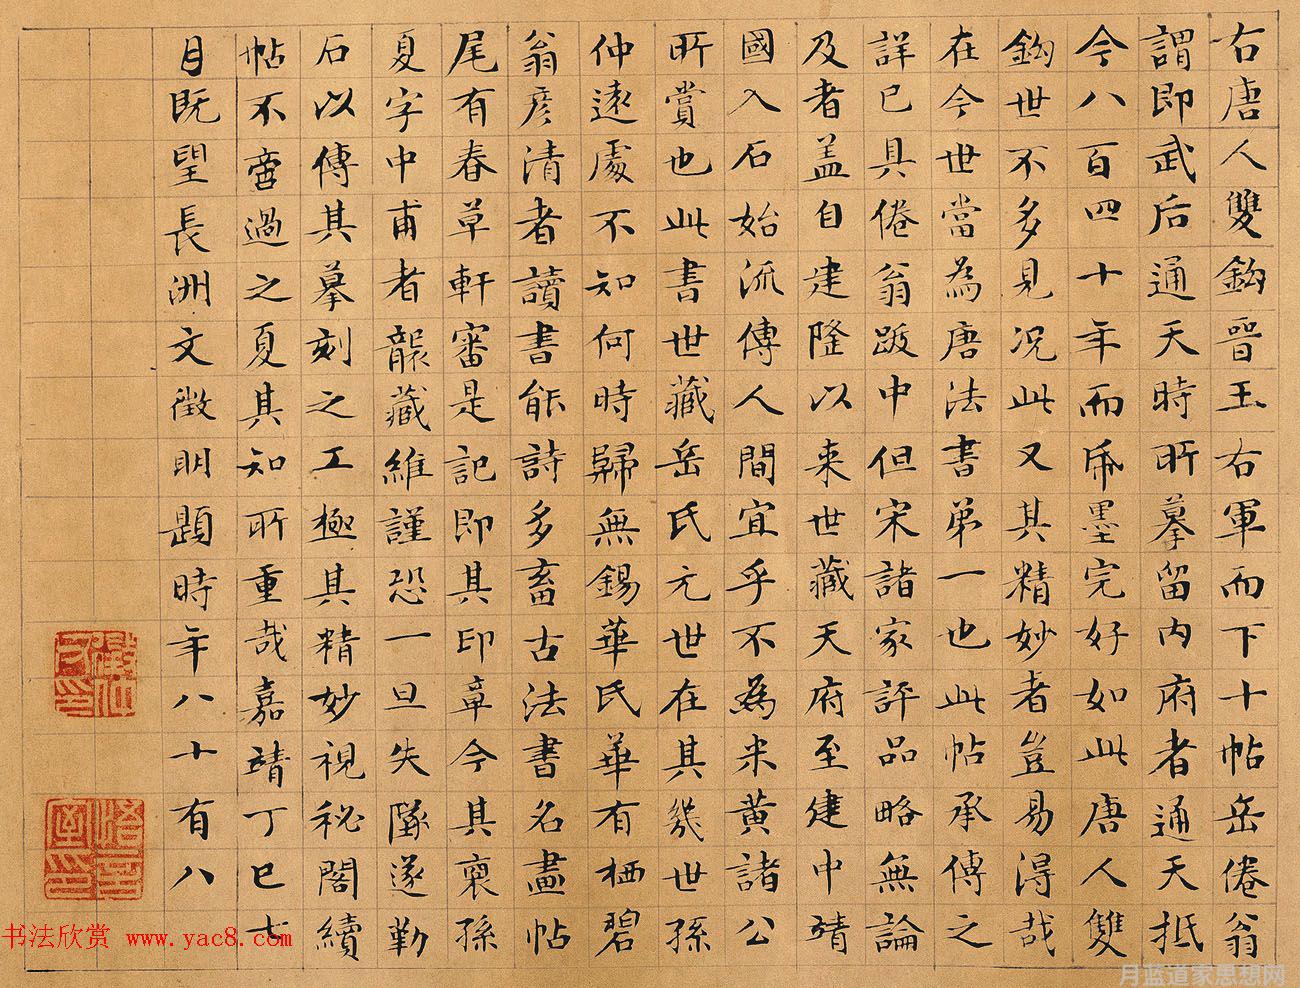 右唐人雙鈎晉王右軍而下十帖岳倦翁
謂即武后通天時所摹留內府者通天抵
今八百四十年而帋墨完好如此唐人雙
鈎世不多見况此又其精妙者豈易得哉
在今世當為唐法書第一也此帖承傳之
詳已具倦翁跋中但宋諸家評品略無論
及者盖自建隆以来世藏天府至建中靖
國入石始流傳人間宜乎不為米黃諸公
所賞也此書世藏岳氏元世在其幾世孫
仲遠處不知何時歸無錫華氏華有栖碧
翁彥清者讀書能詩多畜古法書名畫帖
尾有春草軒審是記即其印章今其裔孫
夏字中甫者襲藏維謹恐一旦失墜遂勒
石以傳其摹刻之工極其精妙視秘閣續
帖不啻過之夏其知所重哉嘉靖丁巳七
月既望長洲文徵明題時年八十有八
書法欣赏 www.yac8.com
月蓝道家思想网